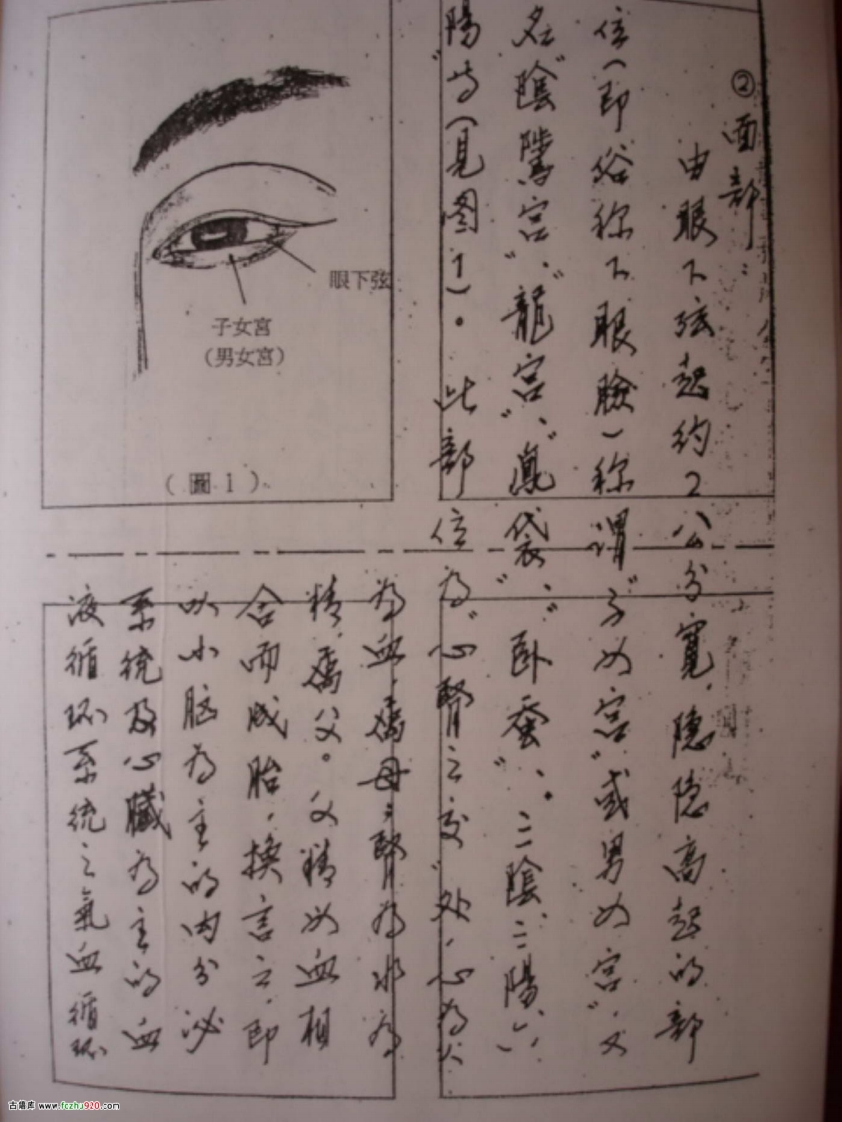 ②面部:
由眼下弦起约2公分寬,隐隐高起的部
位(即俗称下眼臉)称谓"子女宫"或男女宫",又
名"陰隲宫"、"龍宫"、"鳯袋"、"卧蚕"、。三陰三陽、
陽"等(見图1)。此部位為"心腎之交"处,心為火
為血,為母;腎為水為
精,爲父。父精女血相
合而成胎,换言之,即
以小脑为主的内分泌
系统及心臟为主的血
液循环系统之氣血循环
眼下弦
子女宮
(男女宮)
(圖1)
古籍库 www.fczhu920.com